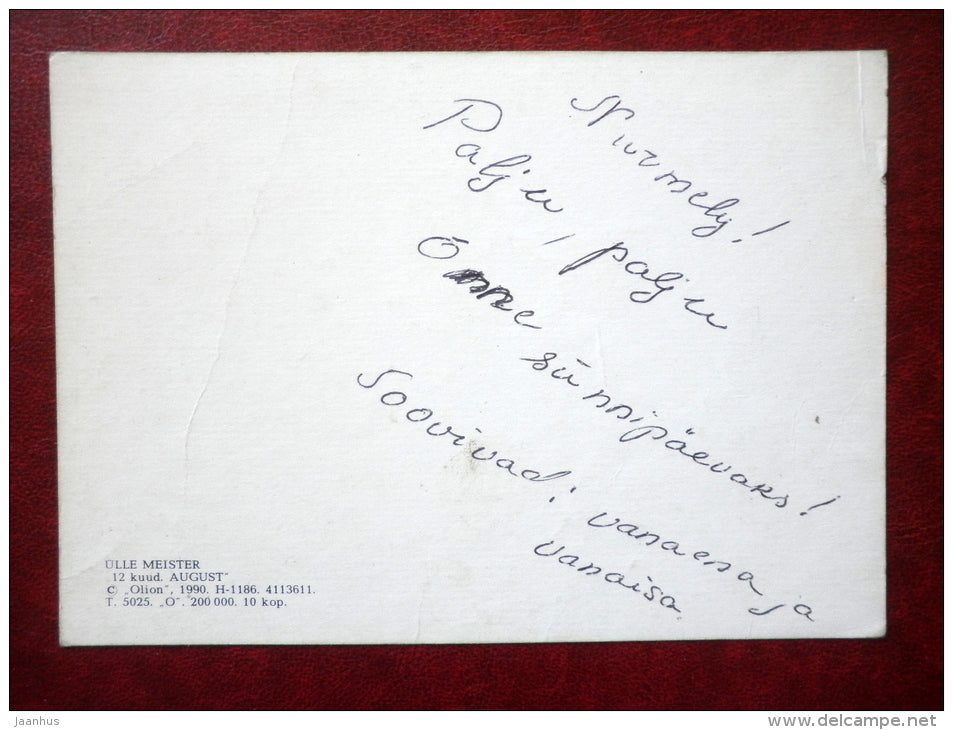 Nurmely!
Palju, palju
Õnne sünnipäevaks!
Soovivad: vanaema ja
vanaisa.
ÜLLE MEISTER
12 kuud. AUGUST"
© „Olion", 1990. H-1186. 4113611.
T. 5025. „O". 200 000. 10 kop.
jaanhus
delcampe.net